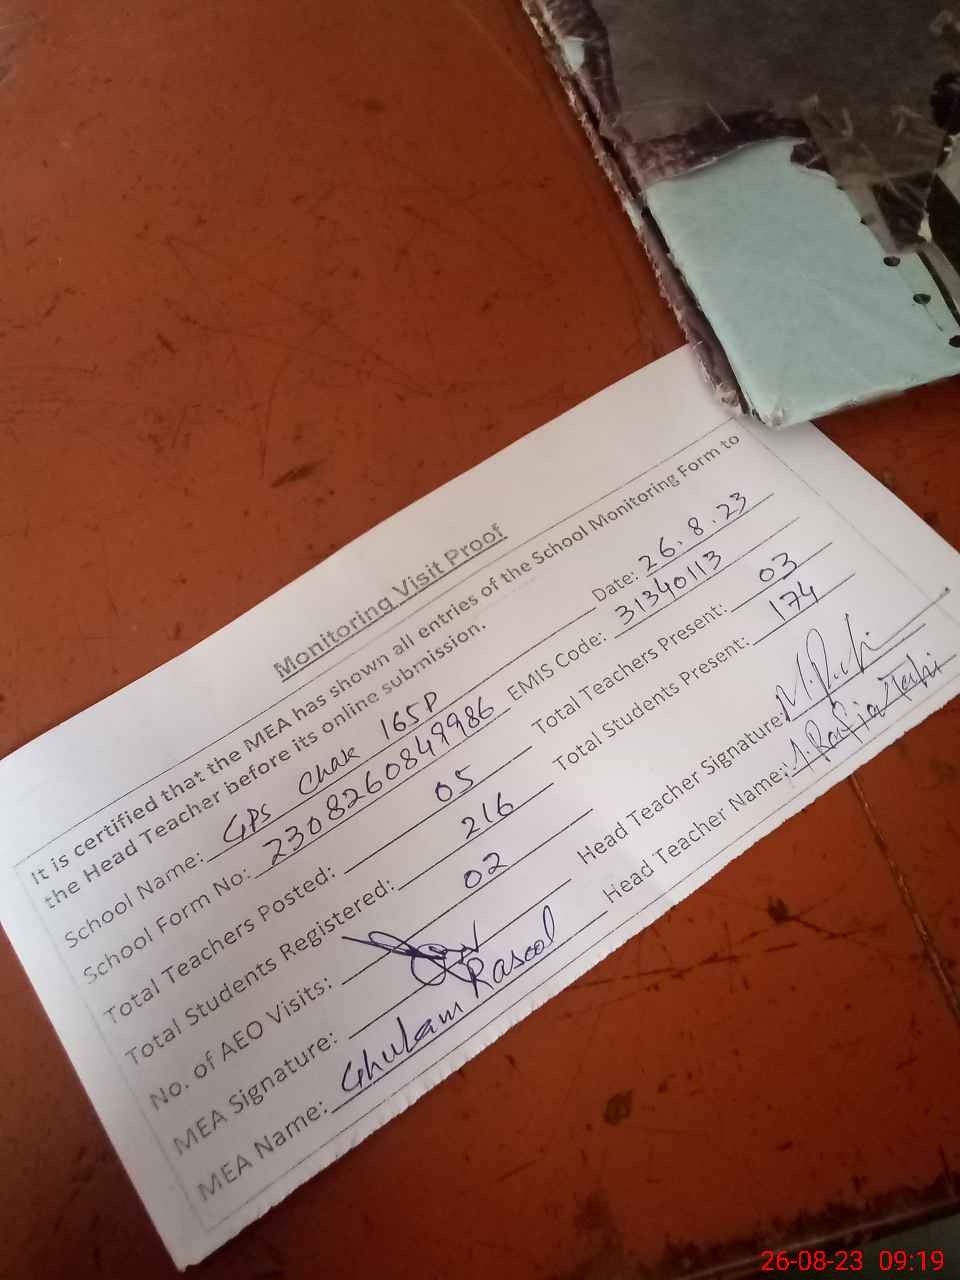 Monitoring Visit Proof
It is certified that the MEA has shown all entries of the School Monitoring Form to
the Head Teacher before its online submission.
Date: 26.8.23
School Name: GPS Chak 165P EMIS Code: 31340113
School Form No: 230826084986 Total Teachers Present: 03
Total Teachers Posted: 05 Total Students Present: 174
Total Students Registered: 216
No. of AEO Visits: 02 Head Teacher Signature:
MEA Signature: Head Teacher Name:
MEA Name: Ghulam Rasool
26-08-23 09:19